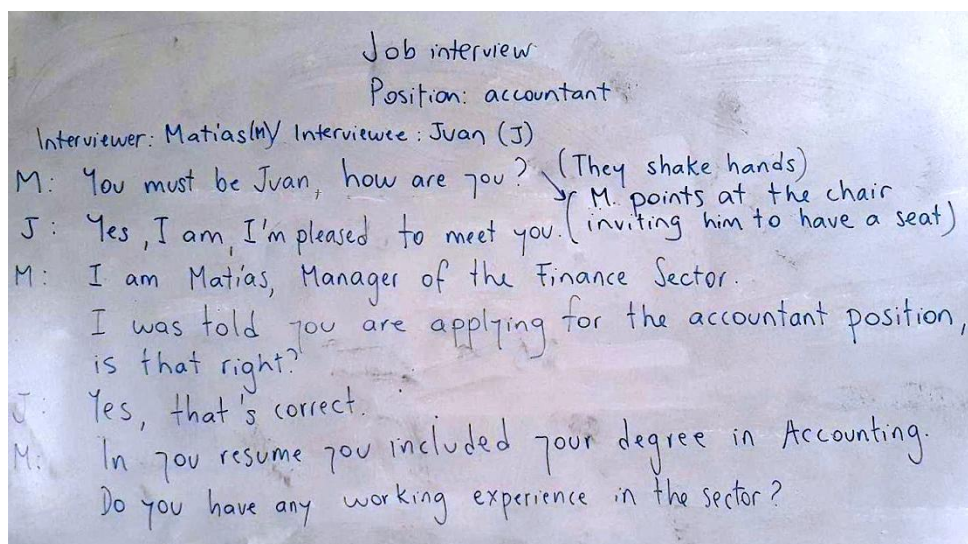 Job interview
Position: accountant
Interviewer: Matias(M) Interviewee: Juan (J)
M: You must be Juan, how are you? (They shake hands)
M. points at the chair
J: Yes, I am, I'm pleased to meet you. (inviting him to have a seat)
M: I am Matías, Manager of the Finance Sector.
I was told you are applying for the accountant position,
is that right?
J: Yes, that's correct.
M: In you resume you included your degree in Accounting.
Do you have any working experience in the sector?